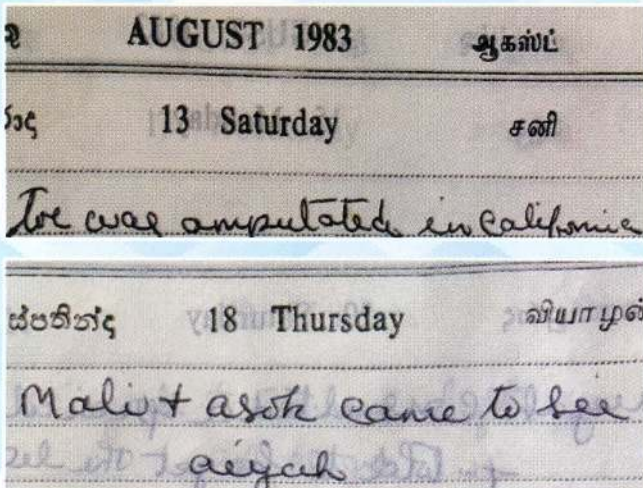 AUGUST 1983 ஆகஸ்ட்
13 Saturday சனி
Toe was amputated in California
18 Thursday வியாழன்
Mali + asok came to see
aiyah